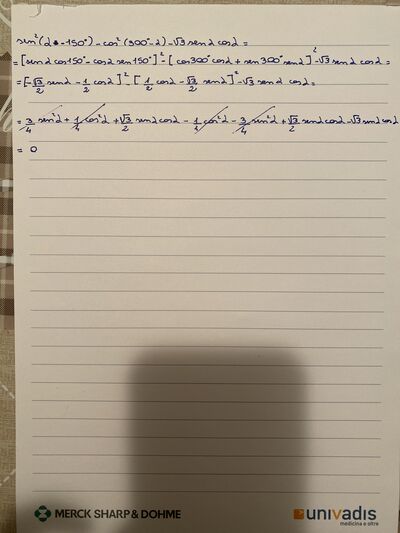 sin²(α-150°)-cos²(300°-α)-√3 senα cosα =
=[senα cos150°-cosα sen150°]²-[cos300° cosα + sen300° senα]²-√3 senα cosα =
=[-√3/2 senα - 1/2 cosα]²-[1/2 cosα - √3/2 senα]²-√3 senα cosα =
= 3/4 sen²α + 1/4 cos²α + √3/2 senα cosα - 1/4 cos²α - 3/4 sen²α + √3/2 senα cosα - √3 senα cosα
= 0
MERCK SHARP & DOHME
univadis
medicina e oltre